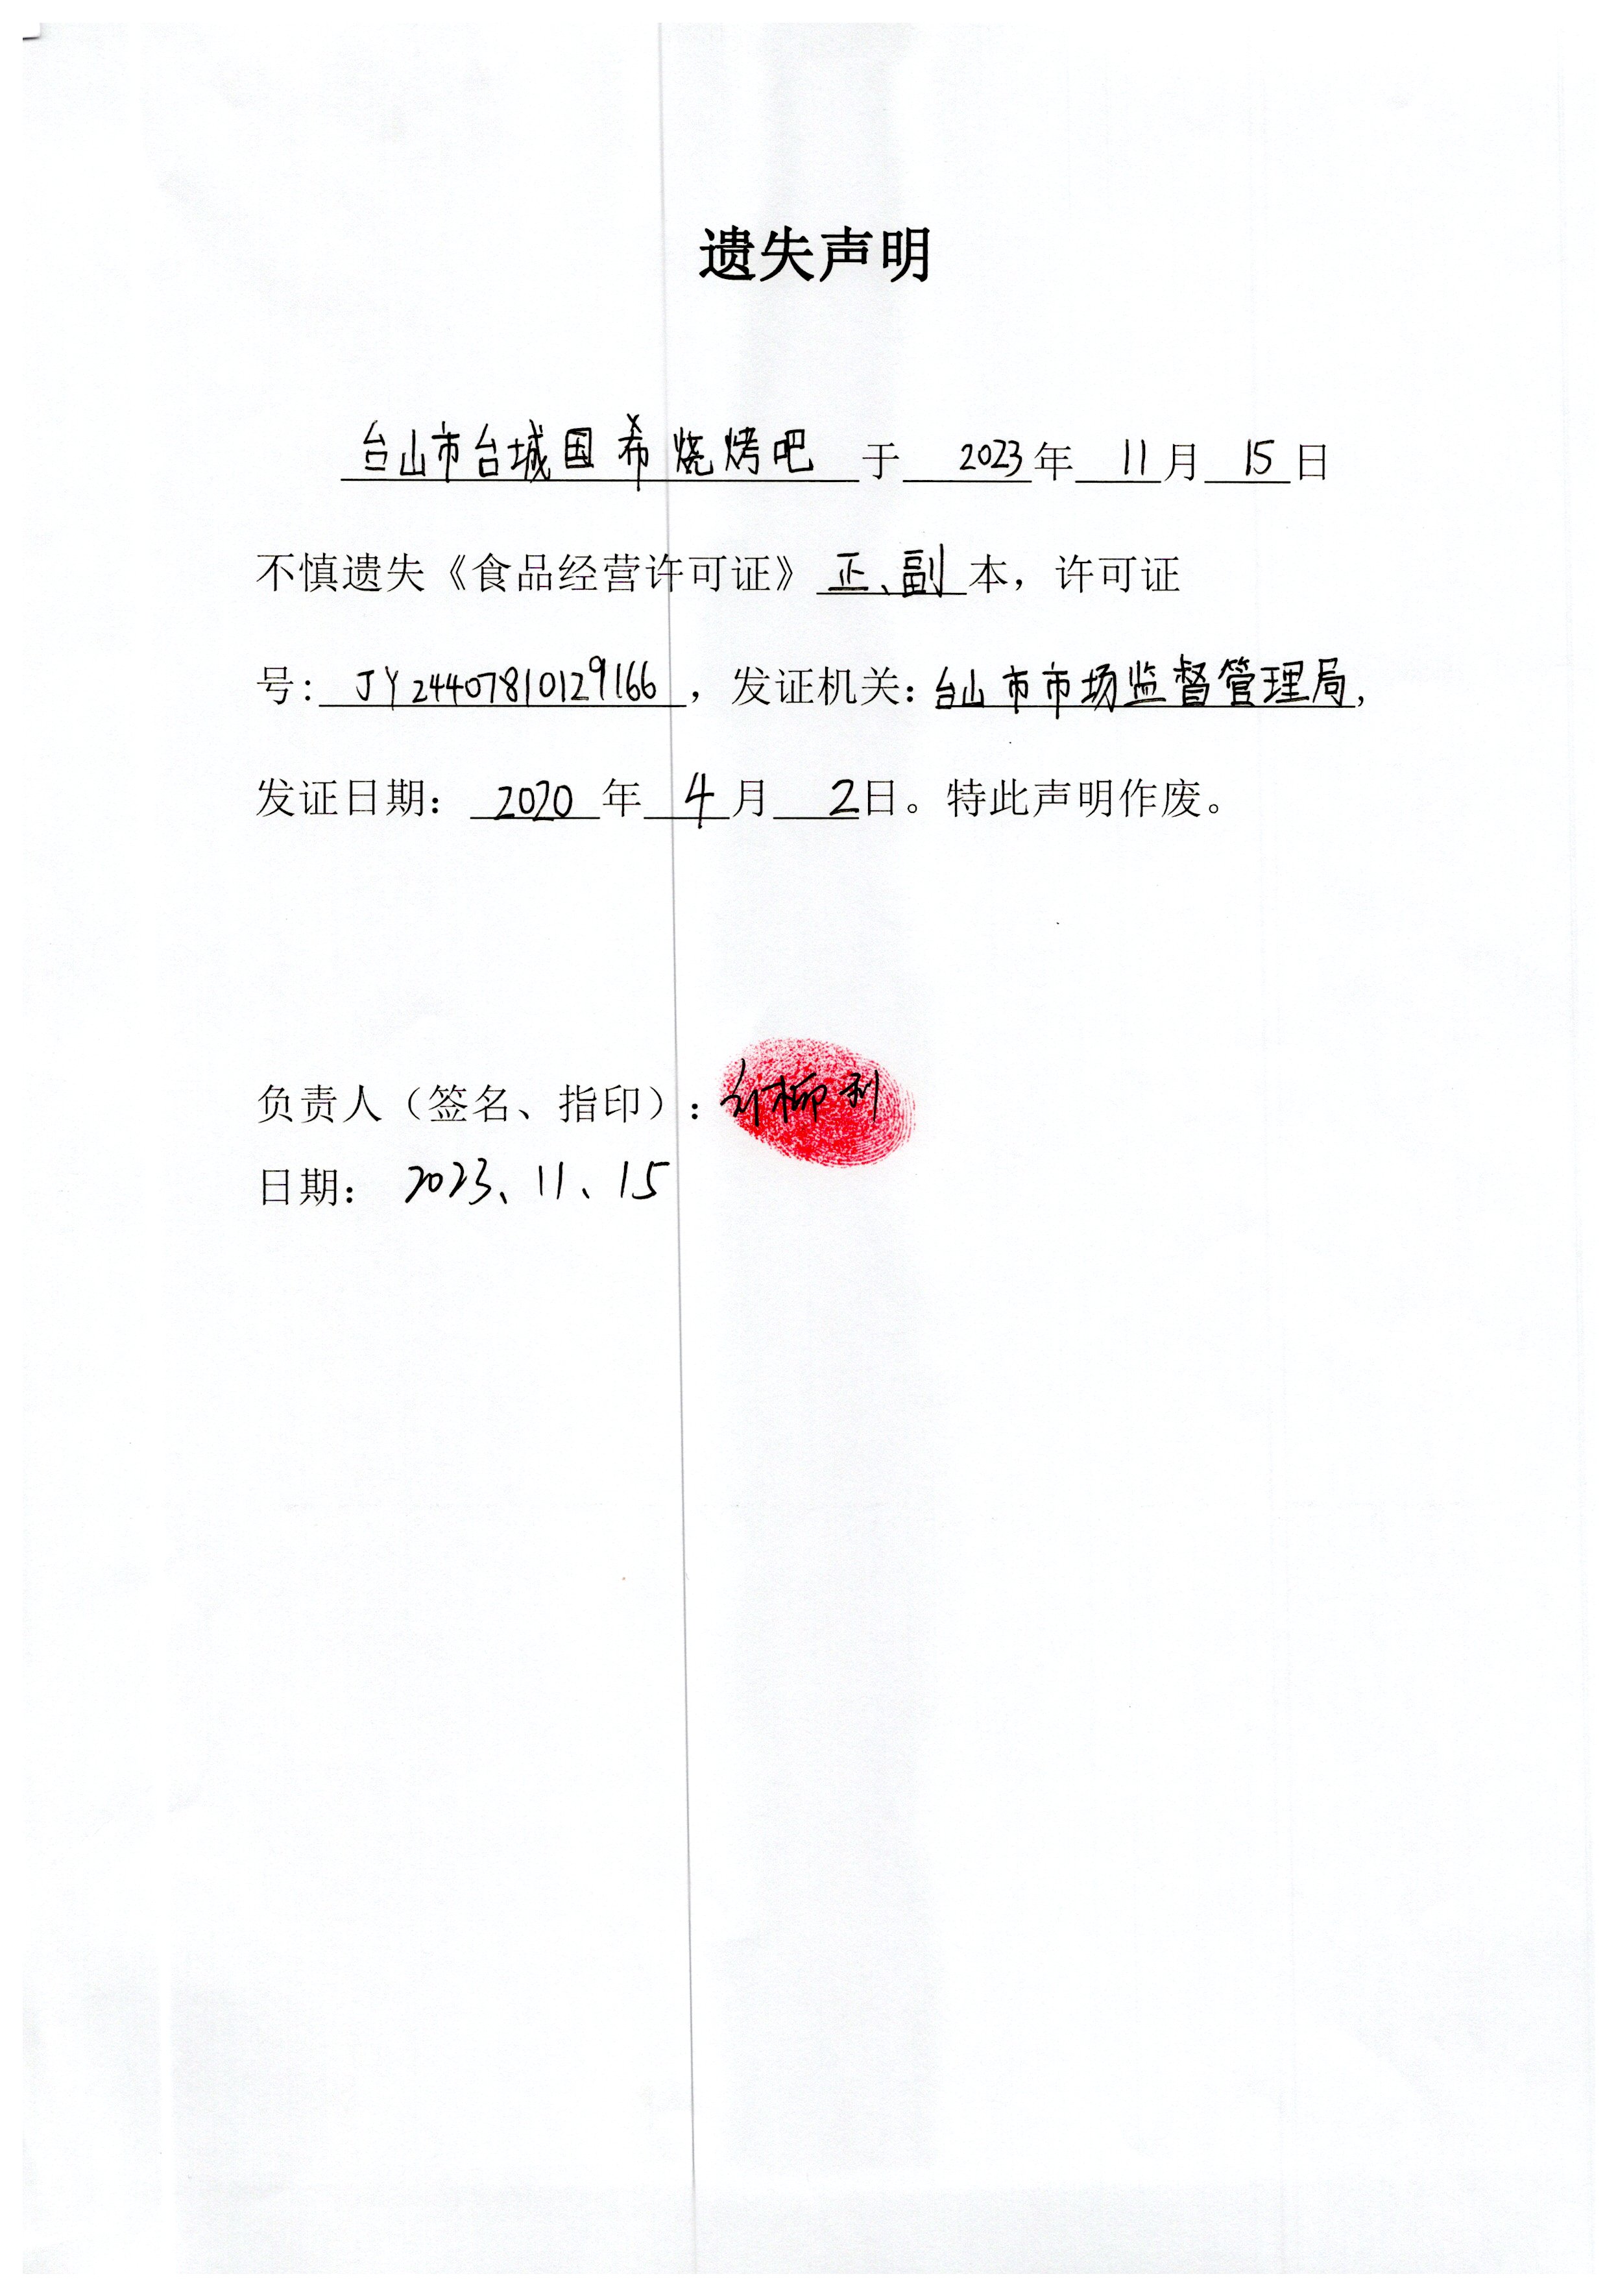 遗失声明
台山市台城国希烧烤吧于2023年11月15日
不慎遗失《食品经营许可证》正、副本，许可证
号：JY24407810129166，发证机关：台山市市场监督管理局，
发证日期：2020年4月2日。特此声明作废。
负责人（签名、指印）：
日期：2023、11、15